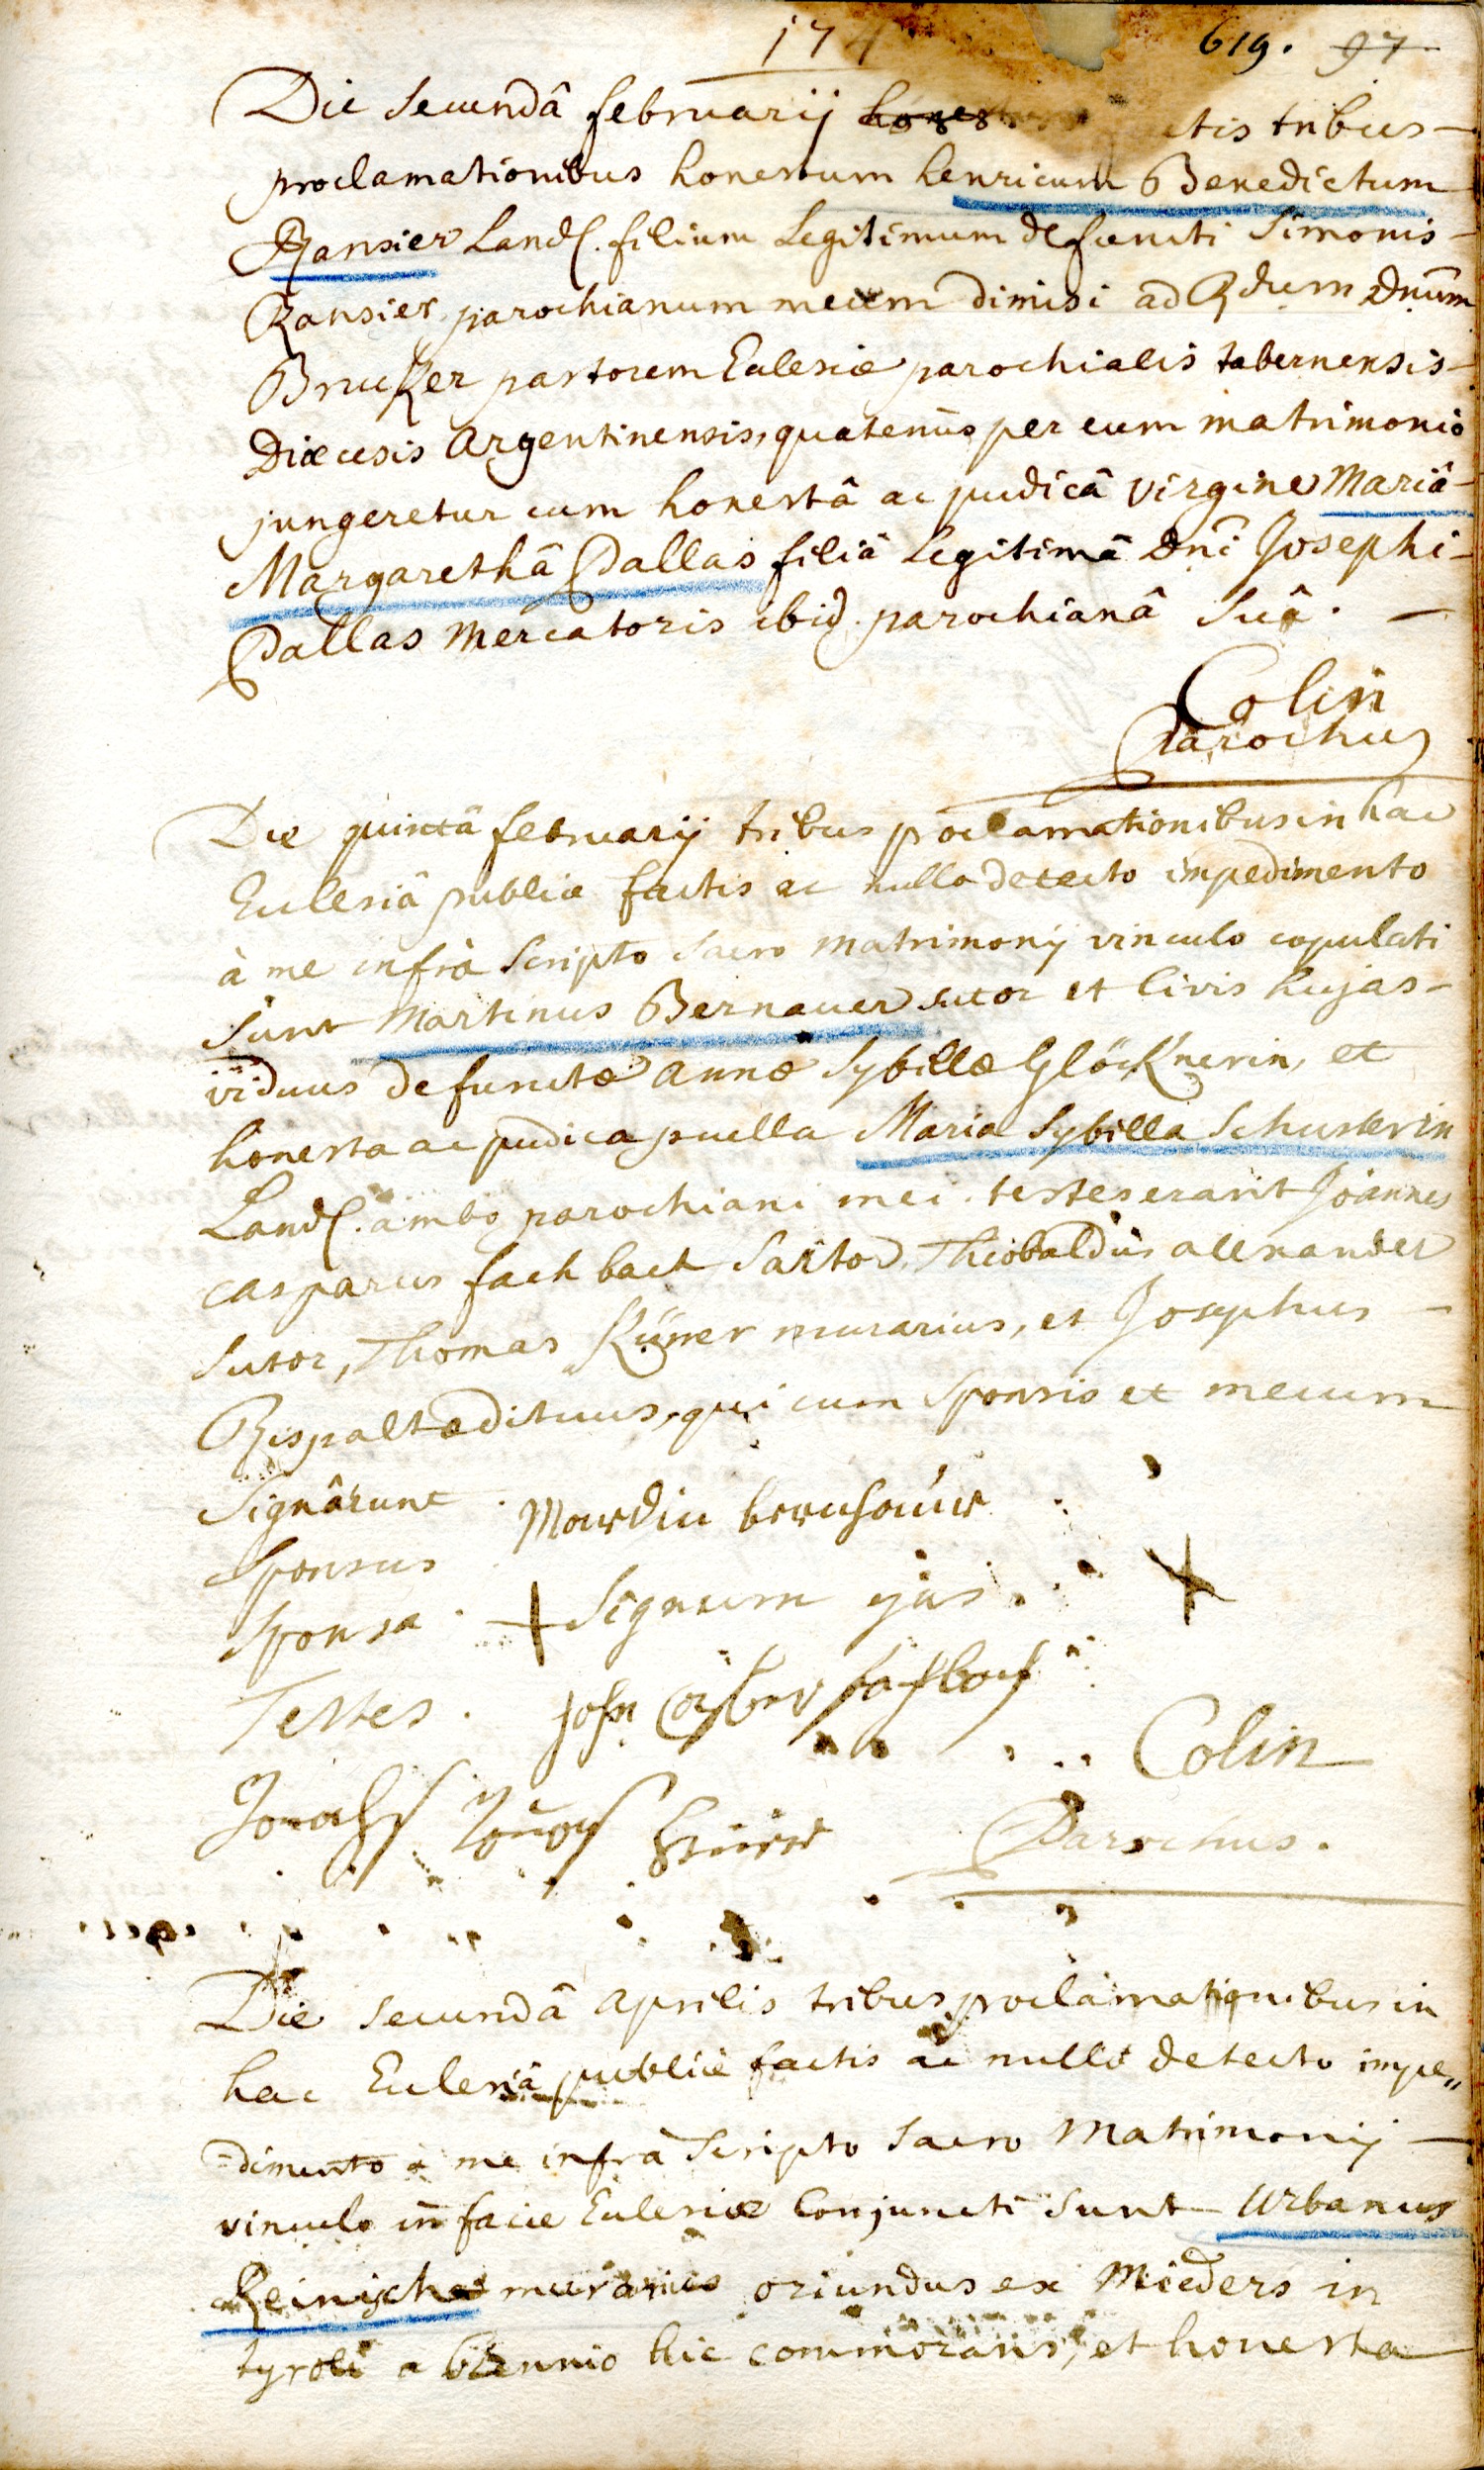 174 619. 97
Die secundâ februarij ctis tribus
proclamationibus honestum henricum Benedictum
Ransier Land. filium Legitimum defuncti Simonis
Ransier parochianum meum dimisi ad Rdum Dnum
Brucker pastorem Eclesiæ parochialis tabernensis
Dioecesis Argentinensis, quatenùs per eum matrimonio
jungeretur cum honestâ ac pudicâ virgine Mariâ
Margarethâ Pallas filiâ Legitimâ Dni Josephi
Pallas Mercatoris ibid. parochianâ suâ.
Colin
Parochus
Die quintâ februarij tribus proclamationibus in hac
Eclesiâ publicè factis ac nullo detecto impedimento
à me infrà scripto sacro matrimonij vinculo copulati
sunt Martinus Bernauer sutor et Civis hujas
viduus defunctæ annæ Sybillæ Glöcknerin, et
honesta ac pudica puella Maria Sybilla Schusterin
Land. ambo parochiani mei. testes erant Joannes
casparus fachbach Sartor, Theobaldus alexander
sutor, Thomas Küner murarius, et Josephus
Rispalt ædituus, qui cum sponsis et mecum
signârunt
Sponsus
Sponsa + Signum ejus. +
Testes.
Colin
Parochus.
Die secundâ Aprilis tribus proclamationibus in
hac Eclesiâ publicè factis ac nullo detecto impe„
dimento à me infrà scripto sacro Matrimonij
vinculo in facie Eclesiæ Conjuncti sunt Urbanus
Reinisch murarius oriundus ex Mieders in
tyroli a biennio hic commorans, et honesta